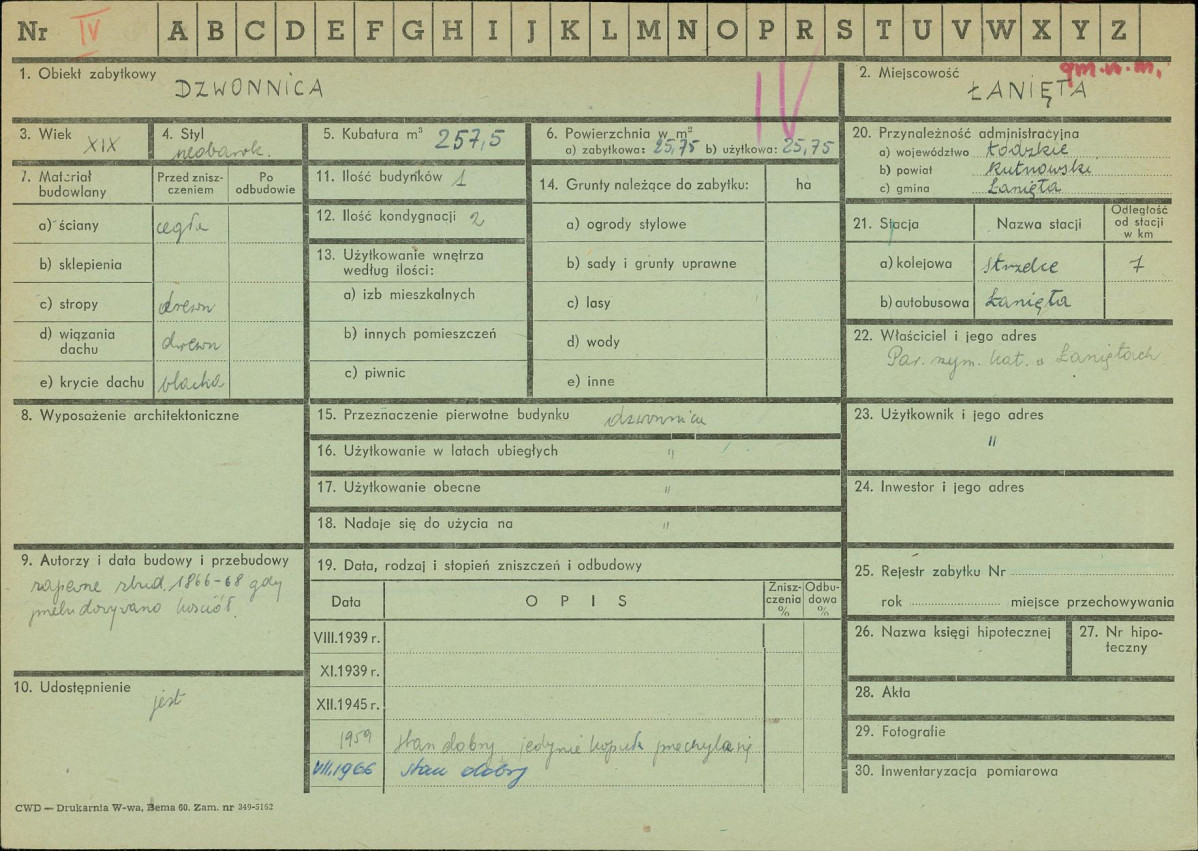 Nr IV A B C D E F G H I J K L M N O P R S T U V W X Y Z
1. Obiekt zabytkowy
DZWONNICA
IV
2. Miejscowość
gm. n. m.
ŁANIĘTA
3. Wiek
XIX
4. Styl
neobarok.
5. Kubatura m³ 257,5
6. Powierzchnia w m²
a) zabytkowa: 25,75 b) użytkowa: 25,75
7. Materiał budowlany
Przed znisz-
czeniem
Po
odbudowie
a) ściany cegła
b) sklepienia
c) stropy drewn
d) wiązania
dachu drewn
e) krycie dachu blacha
8. Wyposażenie architektoniczne
9. Autorzy i data budowy i przebudowy
zapewne zbud. 1866-68 gdy
przebudowywano kościół.
10. Udostępnienie
jest
11. Ilość budynków 1
12. Ilość kondygnacji 2
13. Użytkowanie wnętrza
według ilości:
a) izb mieszkalnych
b) innych pomieszczeń
c) piwnic
14. Grunty należące do zabytku: ha
a) ogrody stylowe
b) sady i grunty uprawne
c) lasy
d) wody
e) inne
15. Przeznaczenie pierwotne budynku dzwonnica
16. Użytkowanie w latach ubiegłych "
17. Użytkowanie obecne "
18. Nadaje się do użycia na "
19. Data, rodzaj i stopień zniszczeń i odbudowy
Data
OPIS
Znisz-
czenia
%
Odbu-
dowa
%
VIII.1939 r.
XI.1939 r.
XII.1945 r.
1959 stan dobry, jedynie kopuła przechyla się
VII.1966 stan dobry
20. Przynależność administracyjna
a) województwo Łódzkie
b) powiat Kutnowski
c) gmina Łanięta
21. Stacja
Nazwa stacji
Odległość
od stacji
w km
a) kolejowa Strzelce 7
b) autobusowa Łanięta
22. Właściciel i jego adres
Par. rzym. kat. w Łaniętach
23. Użytkownik i jego adres
"
24. Inwestor i jego adres
25. Rejestr zabytku Nr
rok miejsce przechowywania
26. Nazwa księgi hipotecznej
27. Nr hipo-
teczny
28. Akta
29. Fotografie
30. Inwentaryzacja pomiarowa
CWD — Drukarnia W-wa, Bema 60. Zam. nr 349-5162